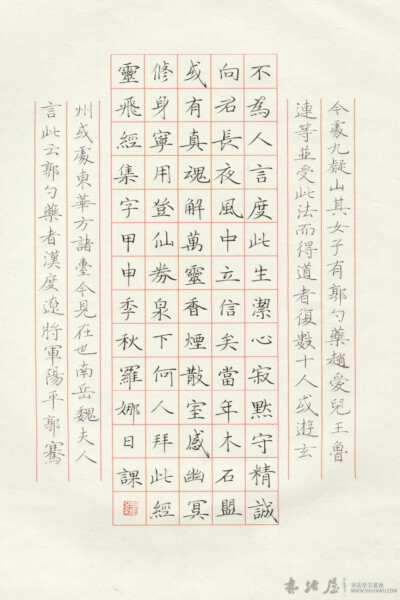 今處九疑山其女子有郭勺藥趙愛兒王魯
連等並受此法而得道者復數十人或遊玄
不為人言度此生潔心寂默守精誠
向君長夜風中立信矣當年木石盟
或有真魂解萬靈香煙散室感幽冥
修身寧用登仙券泉下何人拜此經
靈飛經集字甲申季秋羅娜日課
州或處東華方諸臺今見在世南岳魏夫人
言此云郭勺藥者漢度遼將軍陽平郭騫
书法屋
书法学习基地
WWW.SHUFAWU.COM